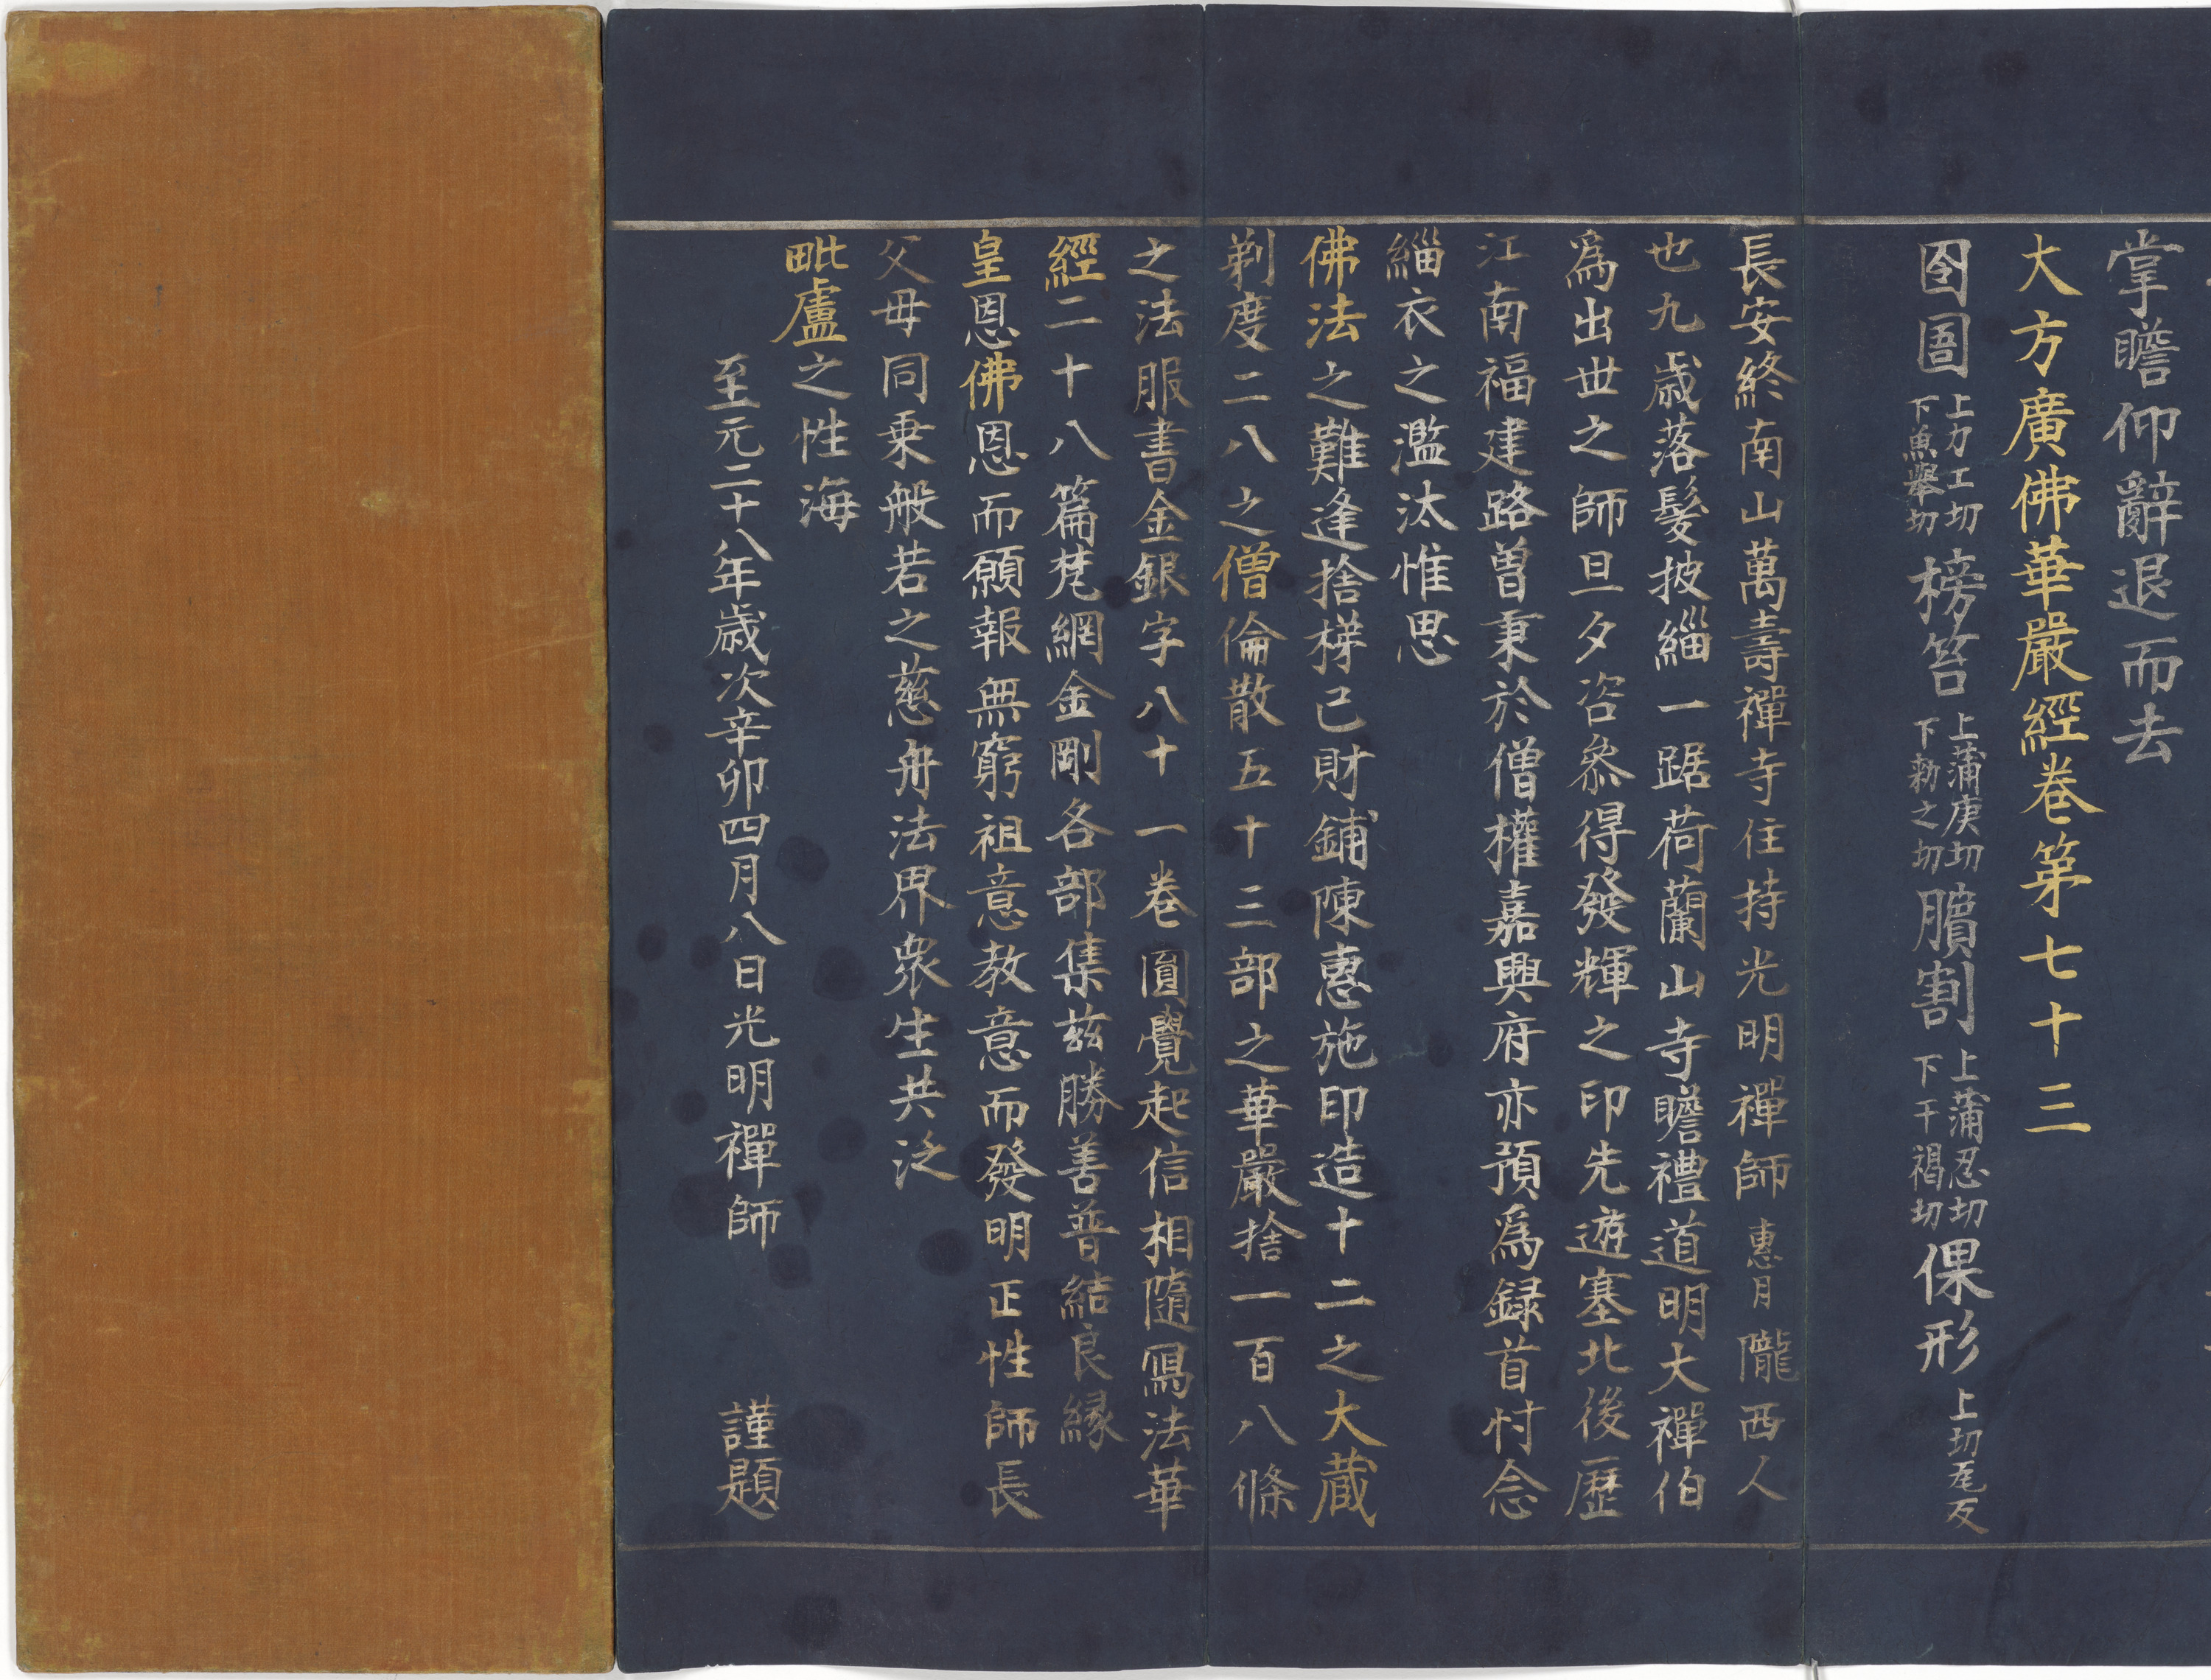 掌瞻仰辭退而去
大方廣佛華嚴經卷第七十三
囹圄上力工切下魚舉切榜笞上蒲庚切下勑之切臏割上蒲忍切下干褐切倮形上切危反
長安終南山萬壽禪寺住持光明禪師惠月隴西人
也九歲落髮披緇一踞荷蘭山寺瞻禮道明大禪伯
爲出世之師旦夕咨叅得發輝之印先遊塞北後歷
江南福建路曽秉於僧權嘉興府亦預爲録首忖念
緇衣之濫汰惟思
佛法之難逢捨样己財鋪陳惠施印造十二之大藏
剃度二八之僧倫散五十三部之華嚴捨一百八條
之法服書金銀字八十一卷圓覺起信相隨寫法華
經二十八篇梵網金剛各部集兹勝善普結良縁
皇恩佛恩而願報無窮祖意教意而發明正性師長
父母同乗般若之慈舟法界衆生共泛
毗盧之性海
至元二十八年歲次辛卯四月八日光明禪師 謹題